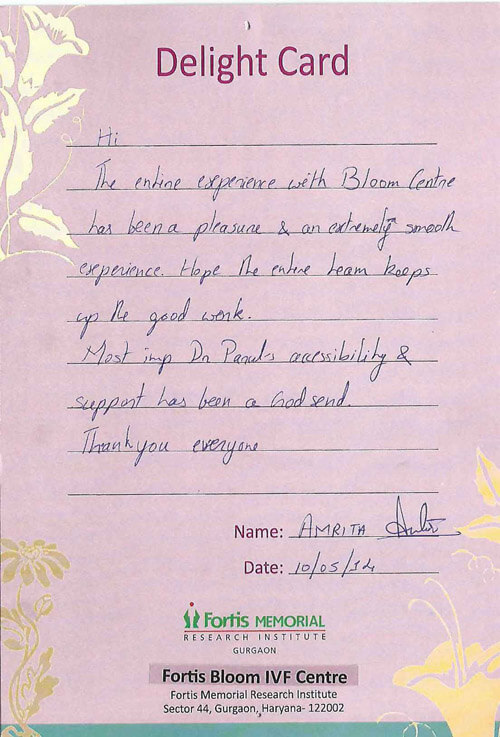 Delight Card
Hi
The entire experience with Bloom Centre
has been a pleasure & an extremely smooth
experience. Hope the entire team keeps
up the good work.
Most imp Dr Parul's accessibility &
support has been a God send.
Thank you everyone
Name: AMRITA
Date: 10/05/14
Fortis MEMORIAL
RESEARCH INSTITUTE
GURGAON
Fortis Bloom IVF Centre
Fortis Memorial Research Institute
Sector 44, Gurgaon, Haryana- 122002